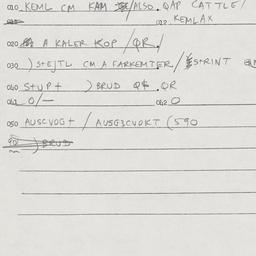 010 KEML CM KAM /ALSO. QAP CATTLE/
012 KEMLAX
020 A KALER KOP /QR/
030 ) STEJTL CM A FARKEMTER/ STRINT
040 STUP+ ) BRUD QR
041 0/— 042 0
050 AUSCVOGT / AUSG3CVOKT (590
) BRUD